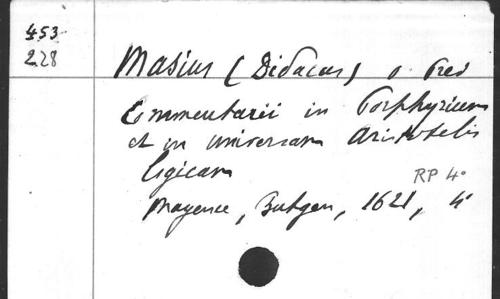 453
228
Masius (Didacus) o. Pred
Commentarii in Porphyrium
et in universam Aristotelis
logicam
RP 4°
Mayence, Butgen, 1621, 4°